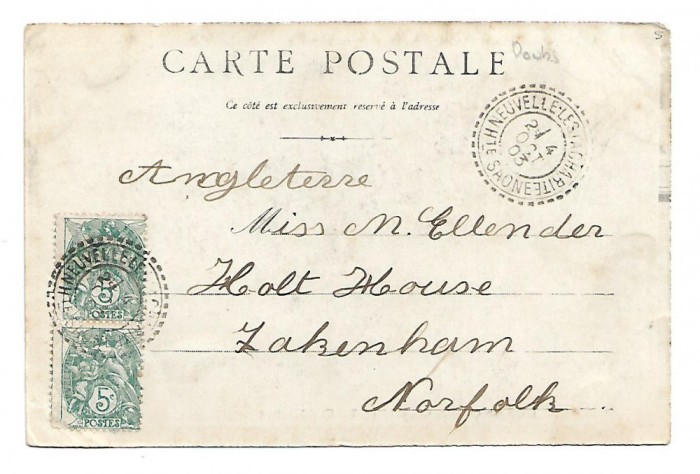 Doubs
CARTE POSTALE
Ce côté est exclusivement reservé à l'adresse
NEUVELLE-LES-LA CHARITÉ
24
OCT
03
HTE SAONE
Angleterre
Miss M. Ellender
Holt House
Fakenham
Norfolk
NEUVELLE-LES
24
5c
POSTES
5c
POSTES